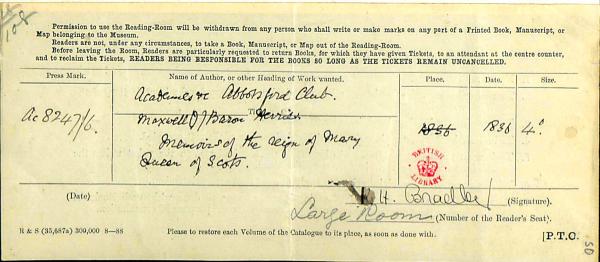 108
Permission to use the Reading-Room will be withdrawn from any person who shall write or make marks on any part of a Printed Book, Manuscript, or
Map belonging to the Museum.
Readers are not, under any circumstances, to take a Book, Manuscript, or Map out of the Reading-Room.
Before leaving the Room, Readers are particularly requested to return Books, for which they have given Tickets, to an attendant at the centre counter,
and to reclaim the Tickets, READERS BEING RESPONSIBLE FOR THE BOOKS SO LONG AS THE TICKETS REMAIN UNCANCELLED.
Press Mark. Name of Author, or other Heading of Work wanted. Place. Date. Size.
Academies &c Abbotsford Club.
Ac 8247/6. Maxwell Baron Herries. 1836 1836 4º
Memoirs of the reign of Mary
Queen of Scots.
BRITISH
LIBRARY
(Date) H. Bradley (Signature).
Large Room (Number of the Reader's Seat).
R & S (35,687a) 300,000 8—88 Please to restore each Volume of the Catalogue to its place, as soon as done with. [P.T.O.